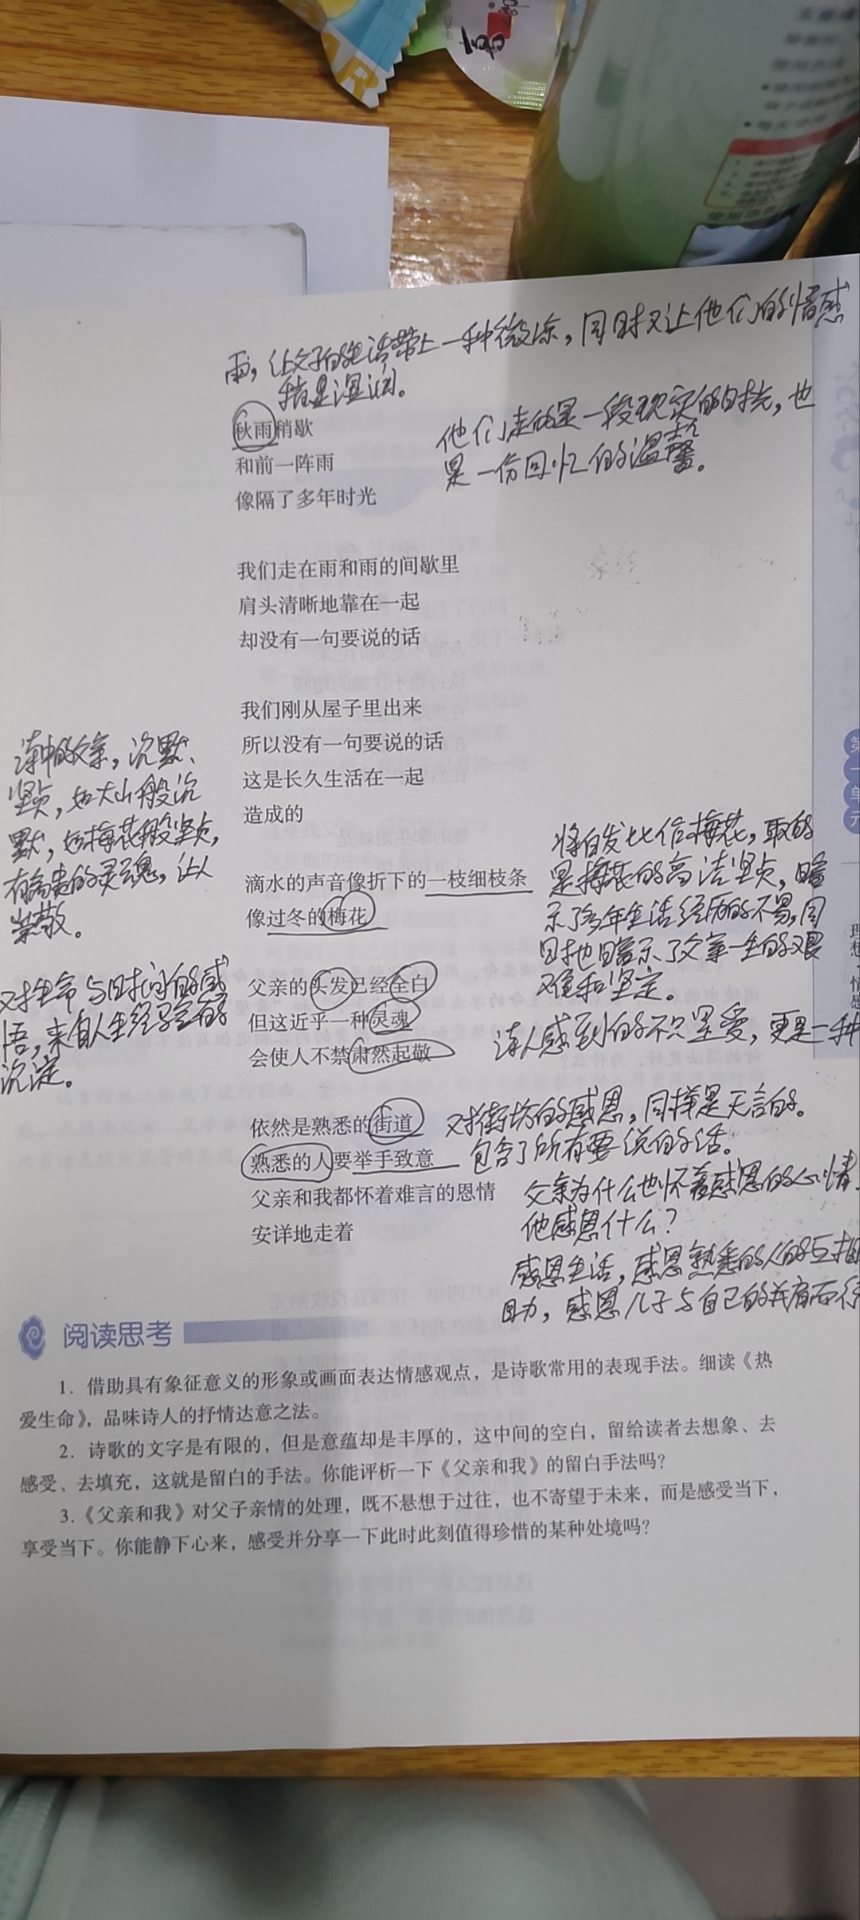 雨，让父子的生活带上一种微凉，同时又让他们的情感
稍显湿润。
秋雨稍歇
和前一阵雨
像隔了多年时光
他们走的是一段现实的时光，也
是一份回忆的温馨。
我们走在雨和雨的间歇里
肩头清晰地靠在一起
却没有一句要说的话
我们刚从屋子里出来
所以没有一句要说的话
这是长久生活在一起
造成的
滴水的声音像折下的一枝细枝条
像过冬的梅花
诗中的父亲，沉默、
坚贞，如大山般沉
默，如梅花般坚贞，
有高贵的灵魂，让人
崇敬。
将白发比作梅花，取的
是梅花的高洁坚贞，暗
示了多年生活经历的不易，同
时也暗示了父辈一生的艰
难和坚定。
父亲的头发已经全白
但这近乎一种灵魂
会使人不禁肃然起敬
对生命与时间的感
悟，来自人生经验的
沉淀。
诗人感到的不只是爱，更是一种
依然是熟悉的街道
熟悉的人要举手致意
父亲和我都怀着难言的恩情
安详地走着
对街坊的感恩，同样是无言的。
包含了所有要说的话。
父亲为什么也怀着感恩的心情，
他感恩什么？
感恩生活，感恩熟悉的人的互相
助，感恩儿子与自己的并肩而行
第一单元
理想·情感
阅读思考
1．借助具有象征意义的形象或画面表达情感观点，是诗歌常用的表现手法。细读《热
爱生命》，品味诗人的抒情达意之法。
2．诗歌的文字是有限的，但是意蕴却是丰厚的，这中间的空白，留给读者去想象、去
感受、去填充，这就是留白的手法。你能评析一下《父亲和我》的留白手法吗？
3．《父亲和我》对父子亲情的处理，既不悬想于过往，也不寄望于未来，而是感受当下，
享受当下。你能静下心来，感受并分享一下此时此刻值得珍惜的某种处境吗？